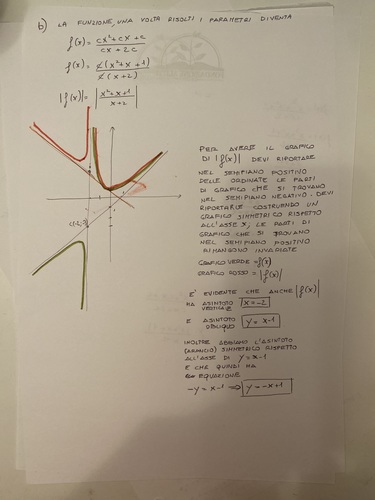 b) LA FUNZIONE, UNA VOLTA RISOLTI I PARAMETRI DIVENTA
f(x) = cx²+cx+c / cx+2c
f(x) = c(x²+x+1) / c(x+2)
|f(x)| = |x²+x+1 / x+2|
PER AVERE IL GRAFICO
DI |f(x)| DEVI RIPORTARE
NEL SEMIPIANO POSITIVO
DELLE ORDINATE LE PARTI
DI GRAFICO CHE SI TROVANO
NEL SEMIPIANO NEGATIVO. DEVI
RIPORTARLE COSTRUENDO UN
GRAFICO SIMMETRICO RISPETTO
ALL'ASSE X; LE PARTI DI
GRAFICO CHE SI TROVANO
NEL SEMIPIANO POSITIVO
RIMANGONO INVARIATE
GRAFICO VERDE = f(x)
GRAFICO ROSSO = |f(x)|
E' EVIDENTE CHE ANCHE |f(x)|
HA ASINTOTO VERTICALE x=-2
E ASINTOTO OBLIQUO y = x-1
INOLTRE ABBIAMO L'ASINTOTO
(ARANCIO) SIMMETRICO RISPETTO
ALL'ASSE DI y = x-1
E CHE QUINDI HA
EQUAZIONE
-y = x-1 ⇒ y = -x+1